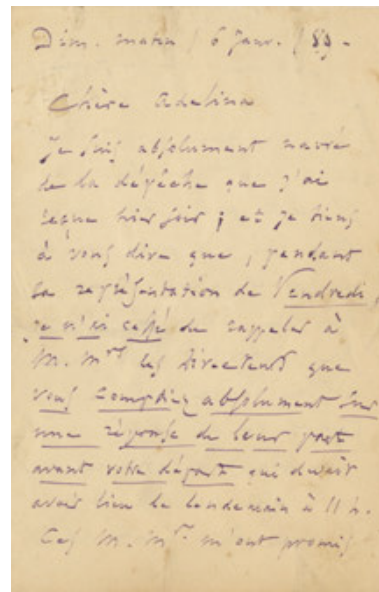 Dim. matin / 6 Janv. / 89.
Chère Adelina
Je suis absolument navré
de la dépêche que j'ai
reçue hier soir ; et je tiens
à vous dire que, pendant
la représentation de Vendredi,
je n'ai cessé de rappeler à
M. Mrs les Directeurs que
vous comptiez absolument sur
une réponse de leur part
avant votre départ qui devait
avoir lieu le lendemain à 11 h.
Ces M. Mrs m'ont promis